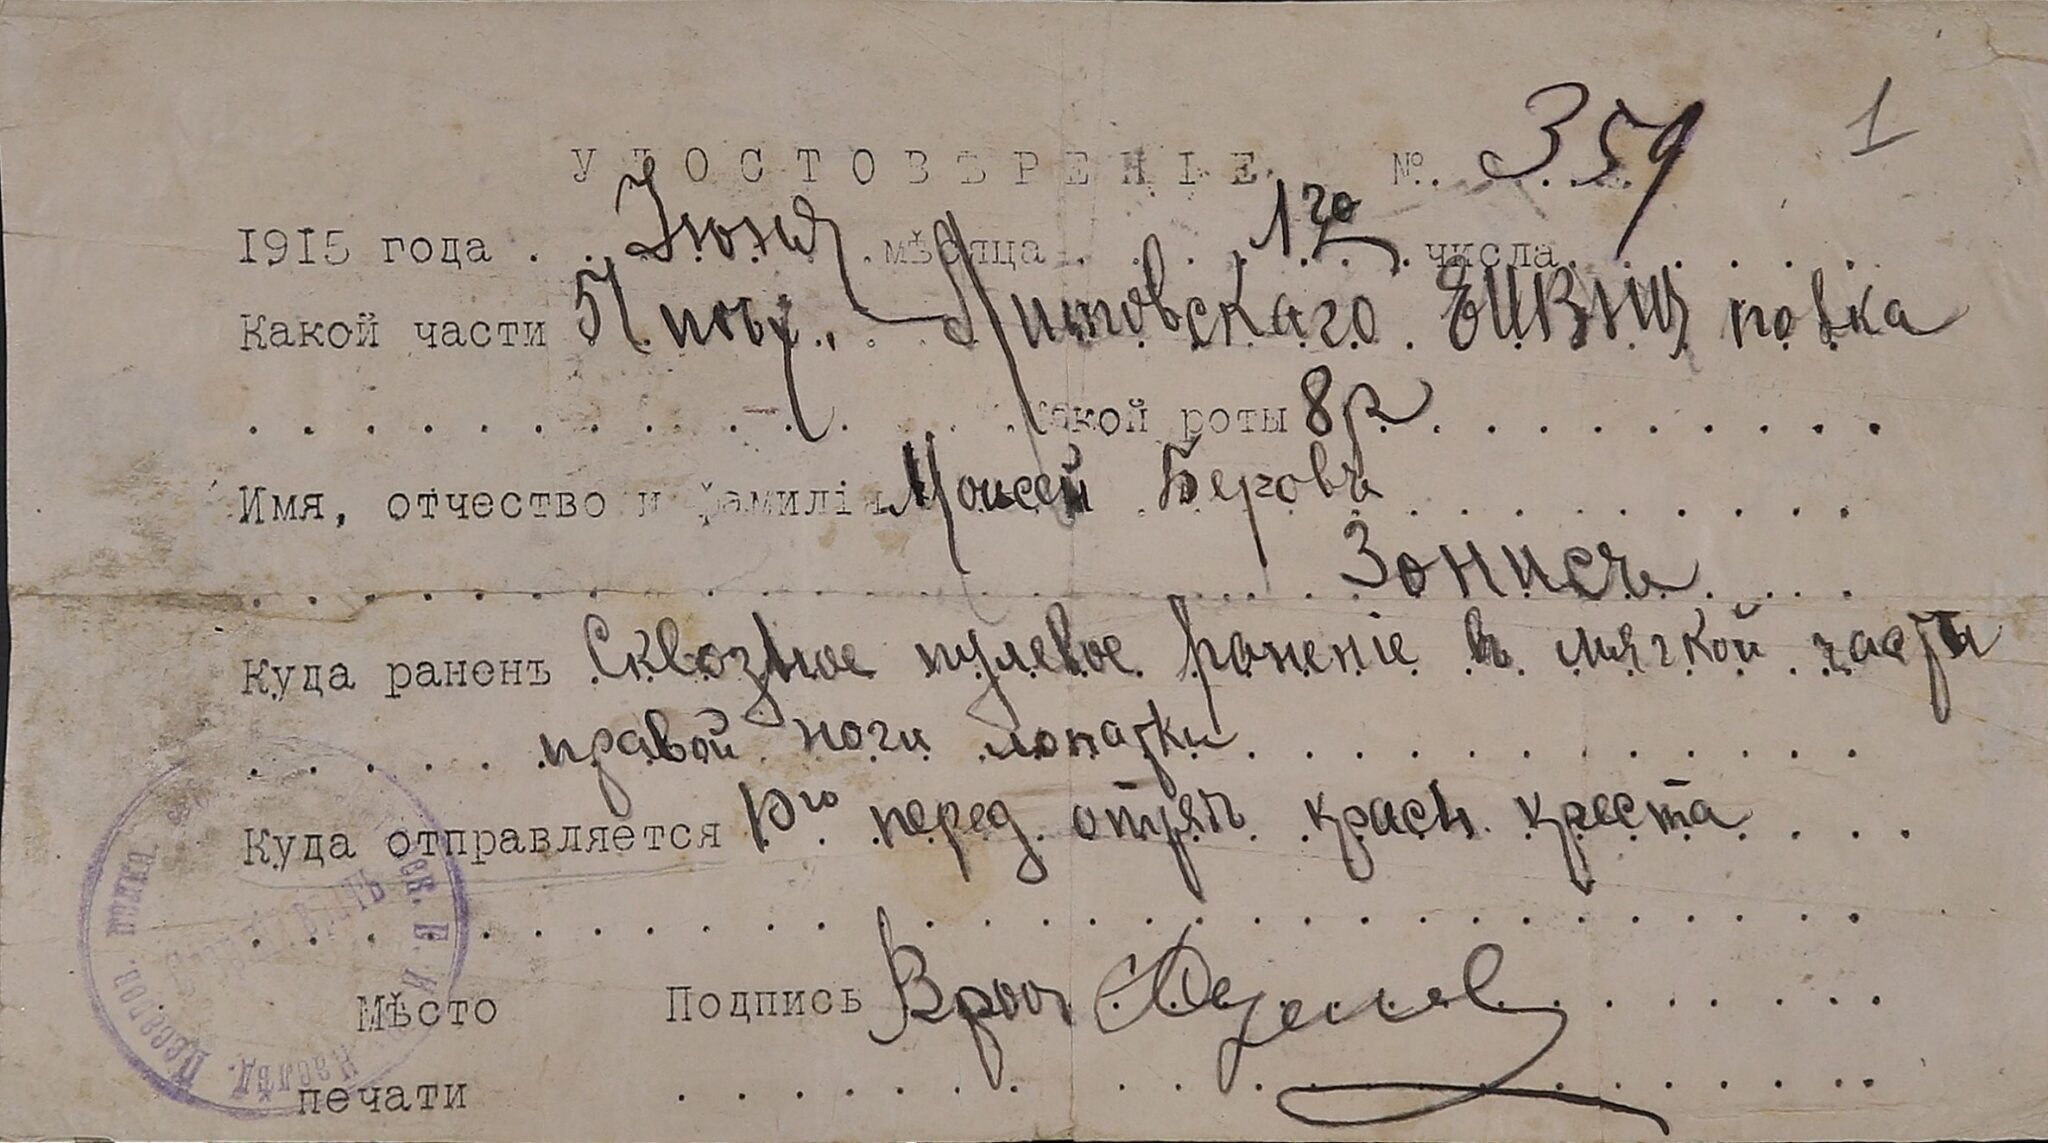 УДОСТОВѢРЕНІЕ №. 359 1
1915 года Июня мѣсяца 1го числа
Какой части 51 пѣх. Литовскаго ЕИВНЦ полка
какой роты 8 р
Имя, отчество и фамилія Моисей Беровъ
Зонисъ
Куда раненъ Сквозное пулевое раненіе въ мягкой части
правой ноги лопатки
Куда отправляется 10го перед. отряъ красн. креста
Мѣсто Подпись Врач
печати
Наслѣд. Цесаров. полка